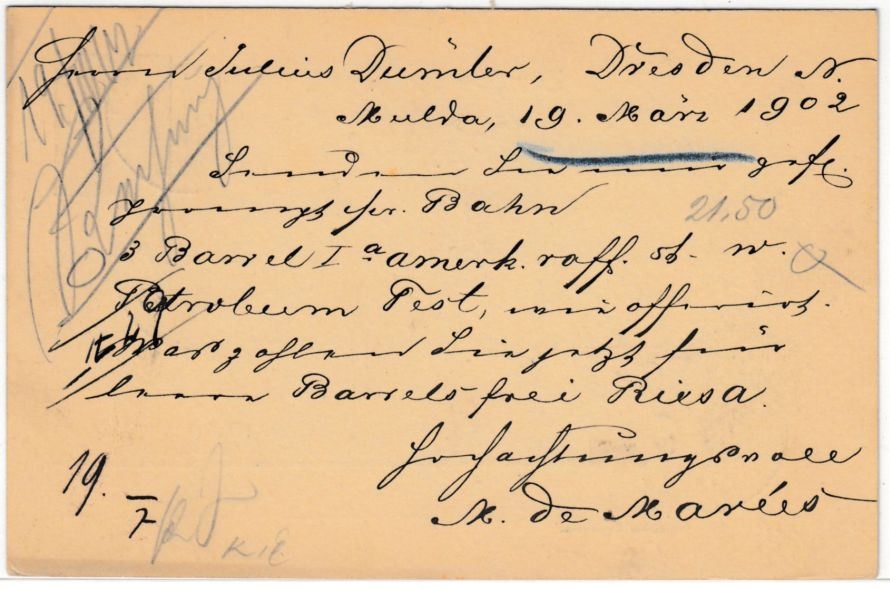 Herrn Julius Dümler, Dresden N.
Mulda, 19. März 1902
Senden Sie mir gefl.
prompt per. Bahn
21,50
3 Barrel Iª amerk. raff. st. w.
Petroleum Test, wie offerirt.
Was zahlen Sie jetzt für
leere Barrels frei Riesa.
Hochachtungsvoll
M. de Marées
19.